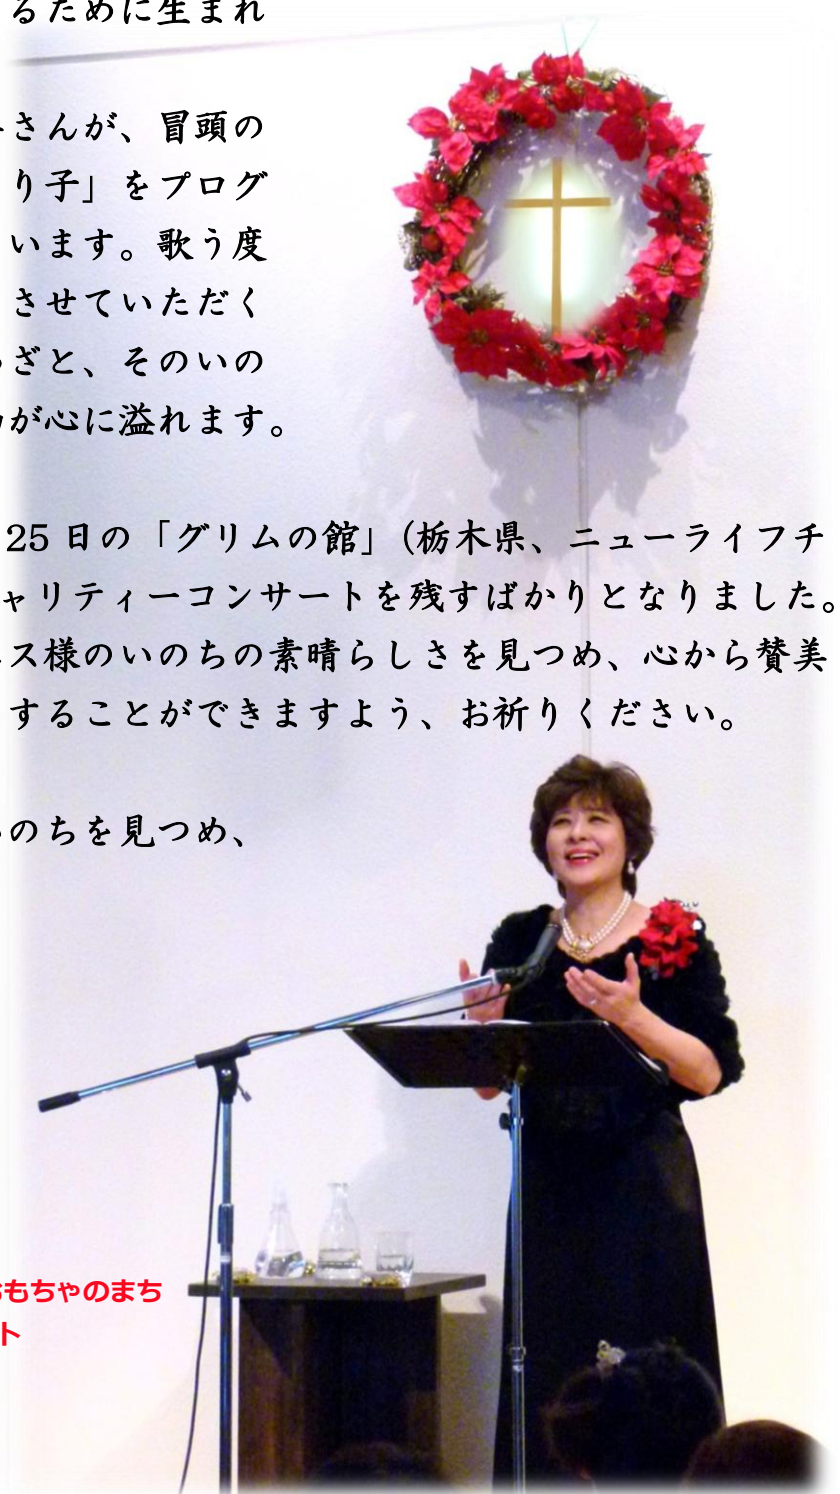 るために生まれ
さんが、冒頭の
り子」をプログ
います。歌う度
させていただく
ざと、そのいの
が心に溢れます。
25 日の「グリムの館」（栃木県、ニューライフチ
ャリティーコンサートを残すばかりとなりました。
ス様のいのちの素晴らしさを見つめ、心から賛美
することができますよう、お祈りください。
のちを見つめ、
おもちゃのまち
ト